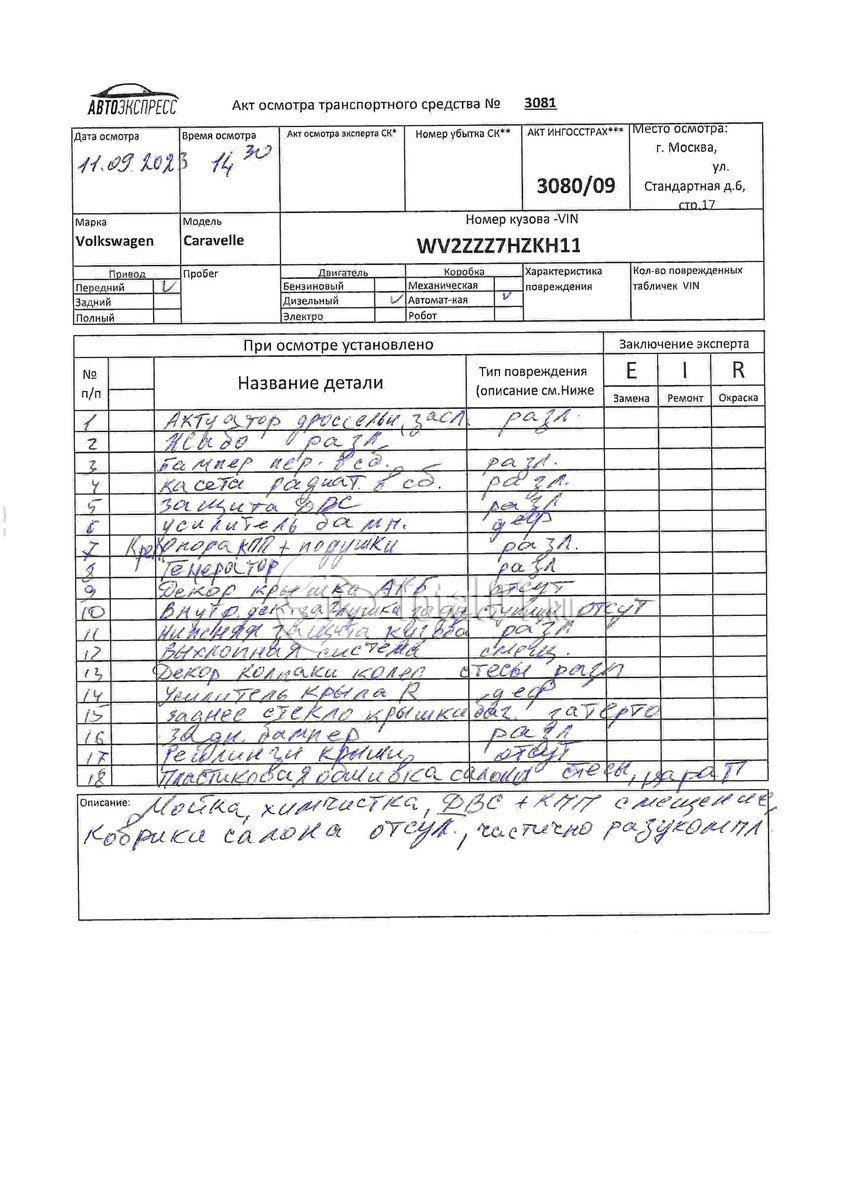 АВТОЭКСПРЕСС
Акт осмотра транспортного средства № 3081
Дата осмотра
11.09.2023
Время осмотра
14 30
Акт осмотра эксперта СК*
Номер убытка СК**
АКТ ИНГОССТРАХ***
3080/09
Место осмотра:
г. Москва,
ул.
Стандартная д.6,
стр.17
Марка
Volkswagen
Модель
Caravelle
Номер кузова -VIN
WV2ZZZ7HZKH11
Привод
Передний V
Задний
Полный
Пробег
Двигатель
Бензиновый
Дизельный V
Электро
Коробка
Механическая
Автомат-кая V
Робот
Характеристика
повреждения
Кол-во поврежденных
табличек VIN
При осмотре установлено
Заключение эксперта
№
п/п
Название детали
Тип повреждения
(описание см.Ниже
E I R
Замена Ремонт Окраска
1 Актуатор дроссельн. засл. разл.
2 разл
3 Бампер пер. в сб. разл.
4 касета радиат. в сб. разл.
5 защита ДВС разл
6 усилитель бамп. деф
7 Опора кПП + подушки разл.
8 Генератор разл
9 Декор крышка АКБ отсут
10 Внутр. дек заглушка задн ступицы отсут
11 Нижняя защита кузова разл
12 Выхлопная система смещ.
13 Декор колпаки колес стесы разл
14 Усилитель крыла R деф
15 заднее стекло крышки баг. затерто
16 Задн. бампер разл
17 Рейлинги крыши отсут
18 Пластиковая обшивка салона стесы, царап
Описание: Мойка, химчистка, ДВС + КПП смещение,
Коврики салона отсут., частично разукомпл.